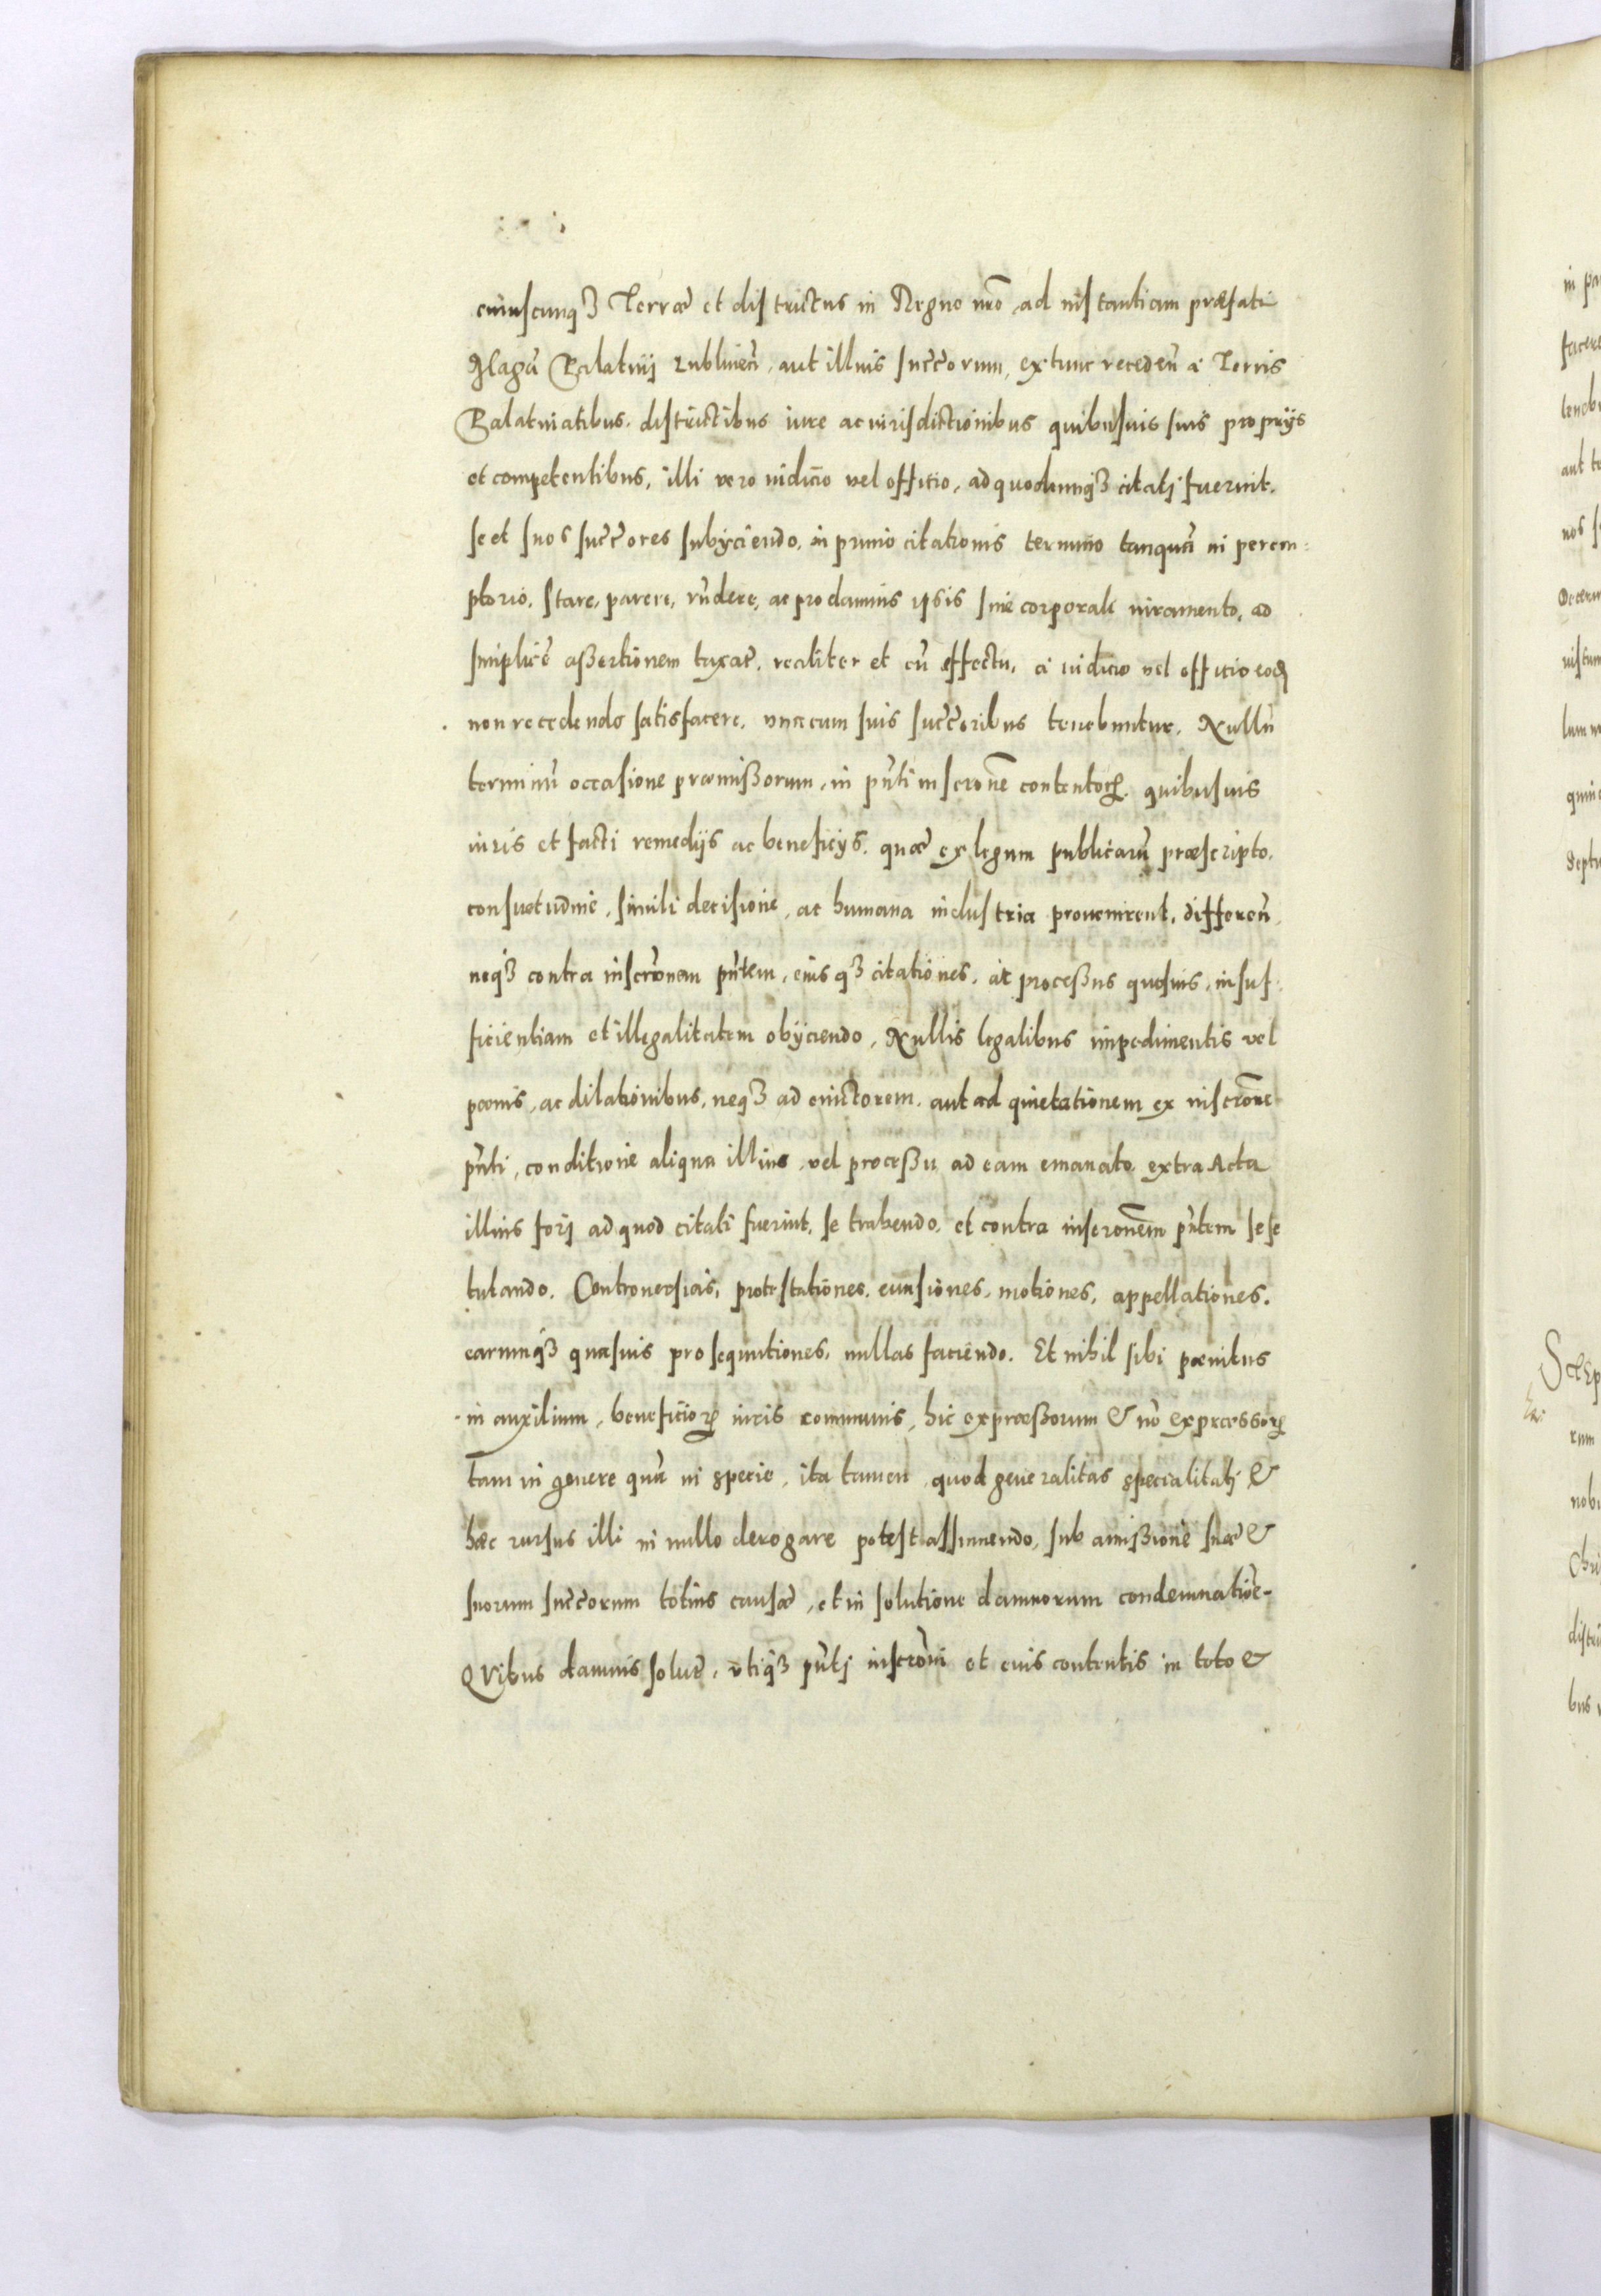 cuiuscunqꝫ Terræ et districtus in Regno nr̃o ad instantiam præfati
Mag̃ci Palatinj Lublineñ, aut illius succ̃orum, ex tunc recedeñ à Terris
Palatinatibus. districtibus iure ac iurisdictionibus quibusuis suis proprijs
et competentibus, illi vero iudicio vel officio, ad quodcunqꝫ citatj fuerint.
se et suos succ̃ores subyciendo, in primo citationis termino tanquã in perem:
ptorio, stare, parere, rñdere, ac pro damnis ipsis sine corporali iuramento, ad
simplicẽ aßertionem taxat̃, realiter et cũ effectu, à iudicio vel officio eodẽ
non recedendo satisfacere, vna cum suis succ̃oribus tenebuntur. Nullũ
terminũ occasione præmißorum, in pñti inscr̃one contentoꝝ. quibusuis
iuris et facti remedijs ac beneficijs. quæ ex legum publicarũ præscripto.
consuetudine, simili decisione, ac humana industria prouenirent, differeñ,
neqꝫ contra inscr̃onem pñtem, eiusqꝫ citationes, ac proceßus quosuis, insuf:
ficientiam et illegalitatem obyciendo, Nullis legalibus impedimentis vel
pœnis, ac dilationibus, neqꝫ ad euictorem. aut ad quietationem ex inscr̃one
pñti, conditione aliqua illius, vel proceßu ad eam emanato extra Acta
illius forj ad quod citati fuerint, se trahendo, et contra inscr̃onem pñtem sese
tutando. Controuersias, protestationes, euasiones, motiones, appellationes.
earumqꝫ quasuis prosequutiones, nullas faciendo. Et nihil sibi pœnitus
in auxilium, beneficioꝝ iuris communis, hic expræßorum & nõ expressoꝝ
tam in genere quã in specie, ita tamen quod generalitas specialitatj &
hæc rursus illi in nullo derogare potest assumendo, sub amißione suæ &
suorum succ̃orum totius causæ, et in solutione damnorum condemnatiõe.
QVibus damnis solut̃, vtiqꝫ pñtj inscr̃oni et eius contentis in toto &